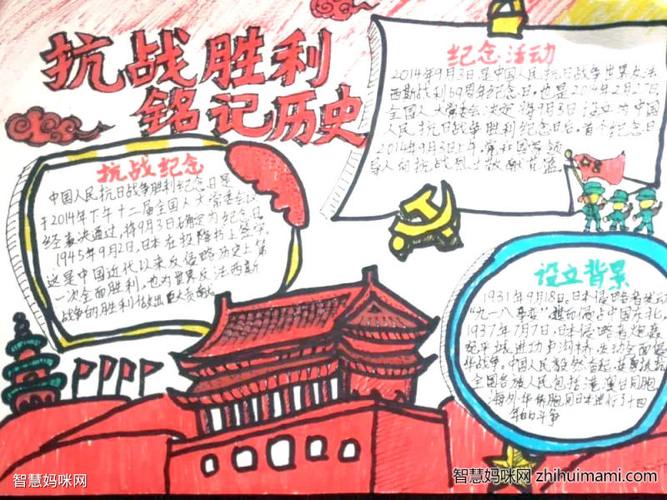 抗战胜利
铭记历史
纪念活动
2014年9月3日是中国人民抗日战争世界反法
西斯战利69周年纪念日,也是2014年2月27日
全国人大常委会决定将9月3日设立为中国
人民抗日战争胜利纪念日后,首个纪念日
2014年9月3日上午,
抗战纪念
中国人民抗日战争胜利纪念日是
于2014年下午十二届全国人大常委会以
经表决通过,将9月3日确定为纪念日
1945年9月2日,日本在投降书上签字
这是中国近代以来反侵略历史上第
一次全面胜利,也为世界反法西斯
战争的胜利做出巨大贡献
设立背景
1931年9月18日,日本侵略者发动
"九一八事变" 占中国东北。
1937年7月7日,日本侵略者炮轰
宛平城进攻卢沟桥,发动全面侵
华战争。中国人民毅然奋起,
全国各族人民包括港澳台同胞
海外华侨同胞同日本进行了十四
年的斗争
智慧妈咪网
智慧妈咪网 zhihuimami.com